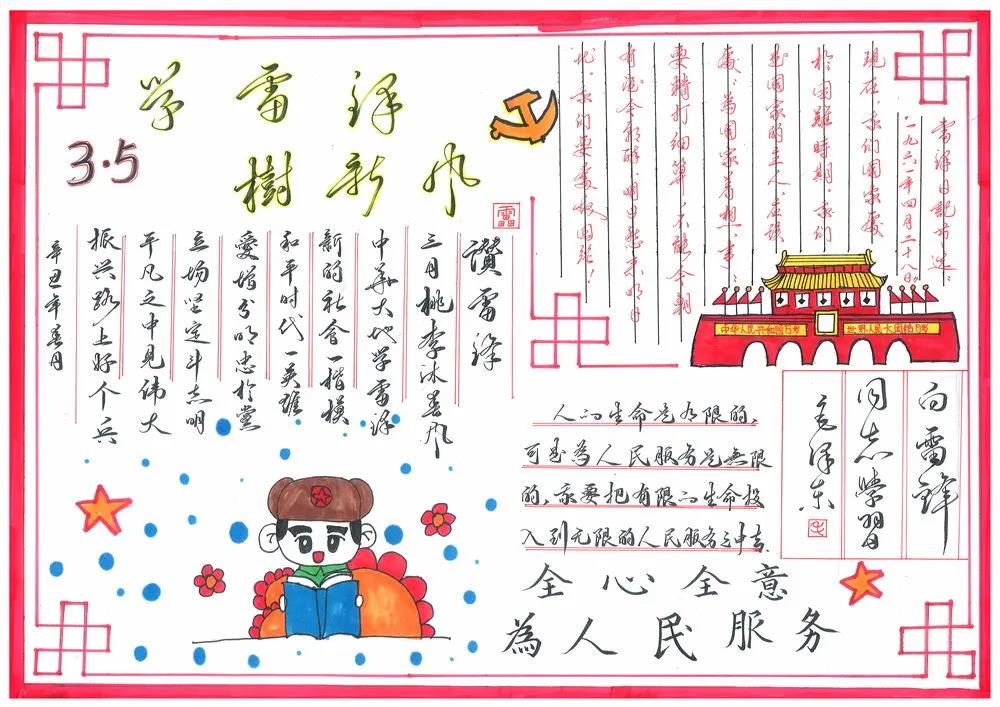 学雷锋
3·5
樹新风
雷
讚雷锋
三月桃李沐春风
中华大地学雷锋
新的社会一楷模
和平时代一英雄
愛憎分明忠於黨
立场坚定斗志明
平凡之中见伟大
振兴路上好个兵
辛丑年春月
雷锋日記节选
一九六一年四月二十八日
現在，我们国家處
於困難時期，我们
是国家的主人，应該
處處為国家着想，事事
要精打细算，不能今朝
有酒今朝醉，明日愁来明日
忧。我们要
中华人民共和国万岁
世界人民大团结万岁
向雷鋒
同志學習
毛泽东
人的生命是有限的，
可是為人民服务是無限
的，我要把有限的生命投
入到无限的人民服务之中去.
全心全意
為人民服务